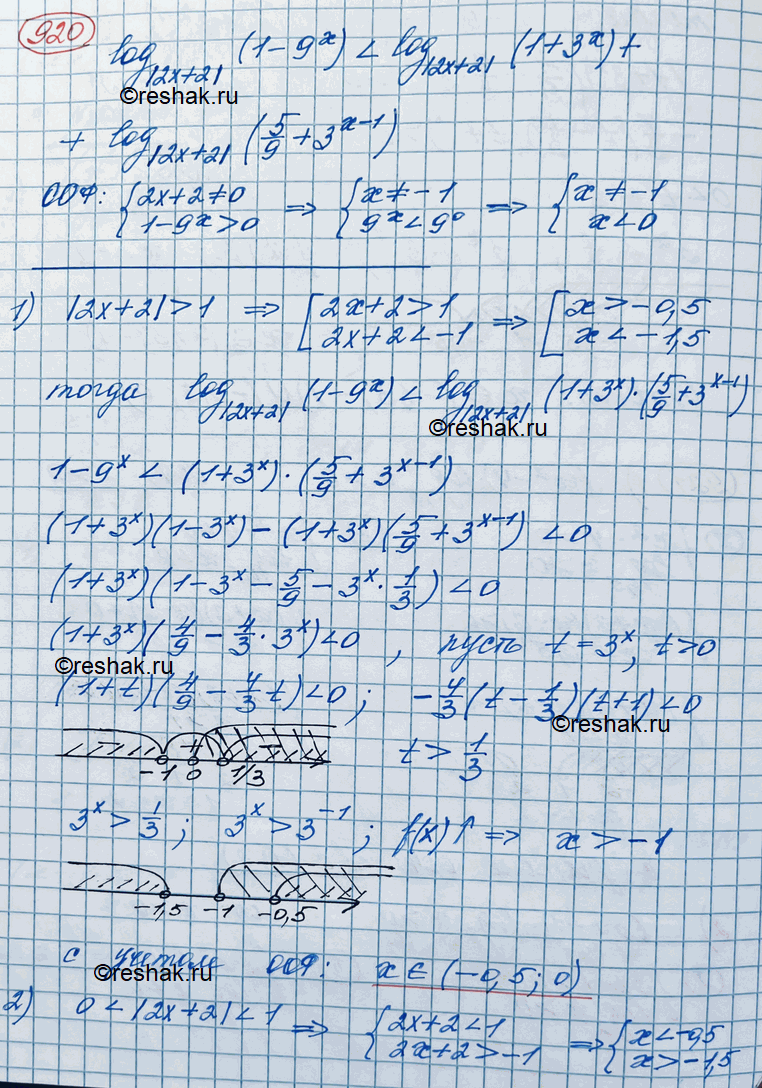 920
log|2x+2| (1-9^x) < log|2x+2| (1+3^x) +
©reshak.ru
+ log|2x+2| (5/9 + 3^(x-1))
ООФ: { 2x+2≠0 ; 1-9^x>0 ⇒ { x≠-1 ; 9^x<9^0 ⇒ { x≠-1 ; x<0
1) |2x+2|>1 ⇒ [ 2x+2>1 ; 2x+2<-1 ⇒ [ x>-0,5 ; x<-1,5
тогда log|2x+2| (1-9^x) < log|2x+2| (1+3^x)·(5/9+3^(x-1))
©reshak.ru
1-9^x < (1+3^x)·(5/9 + 3^(x-1))
(1+3^x)(1-3^x) - (1+3^x)(5/9 + 3^(x-1)) < 0
(1+3^x)(1-3^x - 5/9 - 3^x · 1/3) < 0
(1+3^x)(4/9 - 4/3 · 3^x) < 0 , пусть t = 3^x, t>0
©reshak.ru
(1+t)(4/9 - 4/3 t) < 0 ; -4/3 (t - 1/3)(t+1) < 0
©reshak.ru
- + -
-1 0 1/3 t > 1/3
3^x > 1/3 ; 3^x > 3^-1 ; f(x)↑ ⇒ x > -1
-1,5 -1 -0,5
с учетом ООФ: x ∈ (-0,5; 0)
©reshak.ru
2) 0 < |2x+2| < 1 ⇒ { 2x+2<1 ; 2x+2>-1 ⇒ { x<-0,5 ; x>-1,5